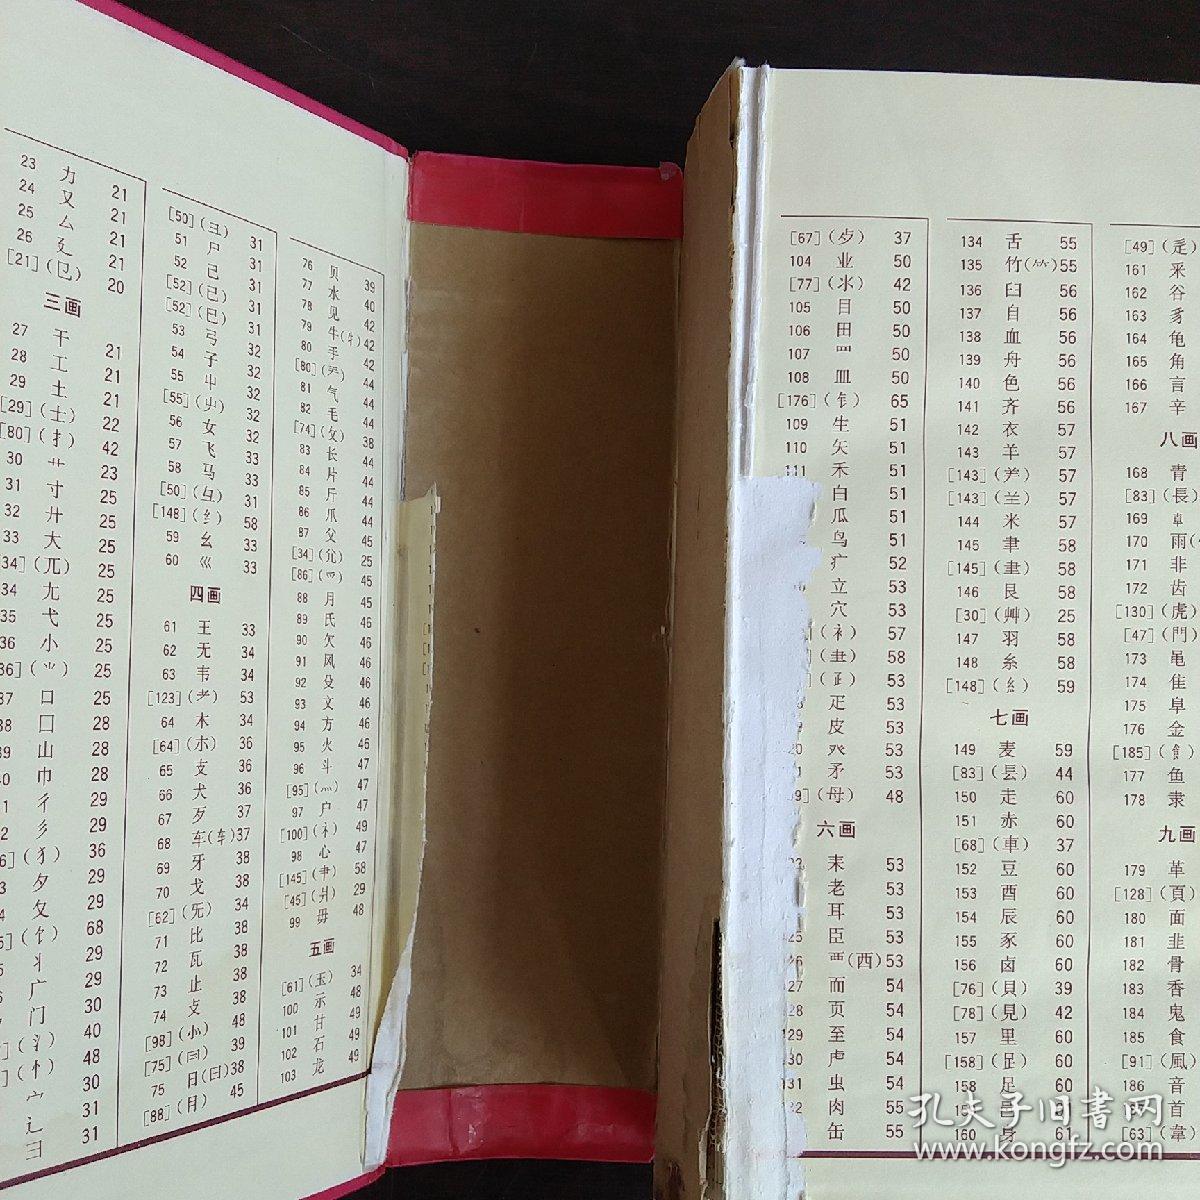 23 力 21
24 又 21
25 厶 21
26 廴 21
[21](㔾) 20
三画
27 干 21
28 工 21
29 土 21
[29](士) 22
[80](扌) 42
30 艹 23
31 寸 25
32 廾 25
33 大 25
[34](兀) 25
34 尢 25
35 弋 25
36 小 25
36](⺌) 25
37 口 25
38 囗 28
39 山 28
40 巾 28
彳 29
彡 29
](犭) 36
夕 29
夂 29
](饣) 68
丬 29
广 29
门 30
](氵) 40
](忄) 48
宀 30
辶 31
彐 31
[50](彑) 31
51 尸 31
52 己 31
[52](已) 31
[52](巳) 31
53 弓 32
54 子 32
55 屮 32
[55](屮) 32
56 女 32
57 飞 33
58 马 33
[50](彑) 31
[148](纟) 58
59 幺 33
60 巛 33
四画
61 王 33
62 无 34
63 韦 34
[123](耂) 53
64 木 34
[64](朩) 36
65 支 36
66 犬 36
67 歹 37
68 车(车)37
69 牙 38
70 戈 38
[62](旡) 34
71 比 38
72 瓦 38
73 止 38
74 攴 38
[98](⺗) 48
[75](曰) 39
75 日(曰)38
[88](月) 45
76 贝 39
77 水 40
78 见 42
79 牛(牜)42
80 手 42
[80](龵) 44
81 气 44
82 毛 44
[74](攵) 38
83 长 44
84 片 44
85 斤 44
86 爪 44
87 父 45
[34](尣) 25
[86](爫) 45
88 月 45
89 氏 46
90 欠 46
91 风 46
92 殳 46
93 文 46
94 方 46
95 火 46
96 斗 47
[95](灬) 47
97 户 47
[100](礻) 49
98 心 49
[145](肀) 58
[45](爿) 29
99 毋 48
五画
[61](玉) 34
100 示 48
101 甘 49
102 石 49
103 龙 49
[67](歺) 37
104 业 50
[77](氺) 42
105 目 50
106 田 50
107 罒 50
108 皿 50
[176](钅) 65
109 生 51
110 矢 51
111 禾 51
白 51
瓜 51
鸟 51
疒 52
立 53
穴 53
](衤) 57
](⺻) 58
](𤴔) 53
疋 53
皮 53
癶 53
矛 53
](母) 48
六画
耒 53
老 53
耳 53
臣 53
覀(西)53
而 54
页 54
至 54
虍 54
虫 54
肉 55
缶 55
134 舌 55
135 竹(⺮)55
136 臼 56
137 自 56
138 血 56
139 舟 56
140 色 56
141 齐 56
142 衣 57
143 羊 57
[143](⺶) 57
[143](⺷) 57
144 米 57
145 聿 58
[145](⺻) 58
146 艮 58
[30](艸) 25
147 羽 58
148 糸 58
[148](糹) 59
七画
149 麦 59
[83](镸) 44
150 走 60
151 赤 60
[68](車) 37
152 豆 60
153 酉 60
154 辰 60
155 豕 60
156 卤 60
[76](貝) 39
[78](見) 42
157 里 60
[158](⻊) 60
158 足 60
160 身 61
[49](辵)
161 釆
162 谷
163 豸
164 龟
165 角
166 言
167 辛
八画
168 青
[83](長)
169 卓
170 雨
171 非
172 齿
[130](虎)
[47](門)
173 黾
174 隹
175 阜
176 金
[185](飠)
177 鱼
178 隶
九画
179 革
[128](頁)
180 面
181 韭
182 骨
183 香
184 鬼
185 食
[91](風)
186 音
首
[63](韋)
孔夫子旧书网
www.kongfz.com